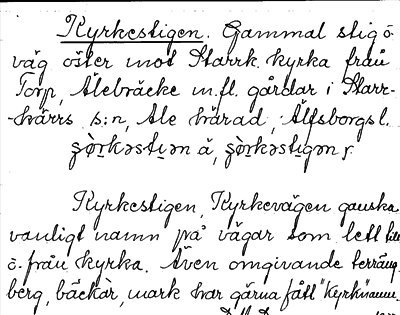 Kyrkestigen. Gammal stig o.
väg öster mot Starrk. kyrka från
Torp, Älebräcke m.fl. gårdar i Starr-
kärrs s:n, Ale härad, Älfsborgs l.
Kyrkestigen, Kyrkevägen ganska
vanligt namn på vägar som lett till
o. från kyrka. Även omgivande terräng,
berg, bäckar, mark har gärna fått "Kyrknamn.